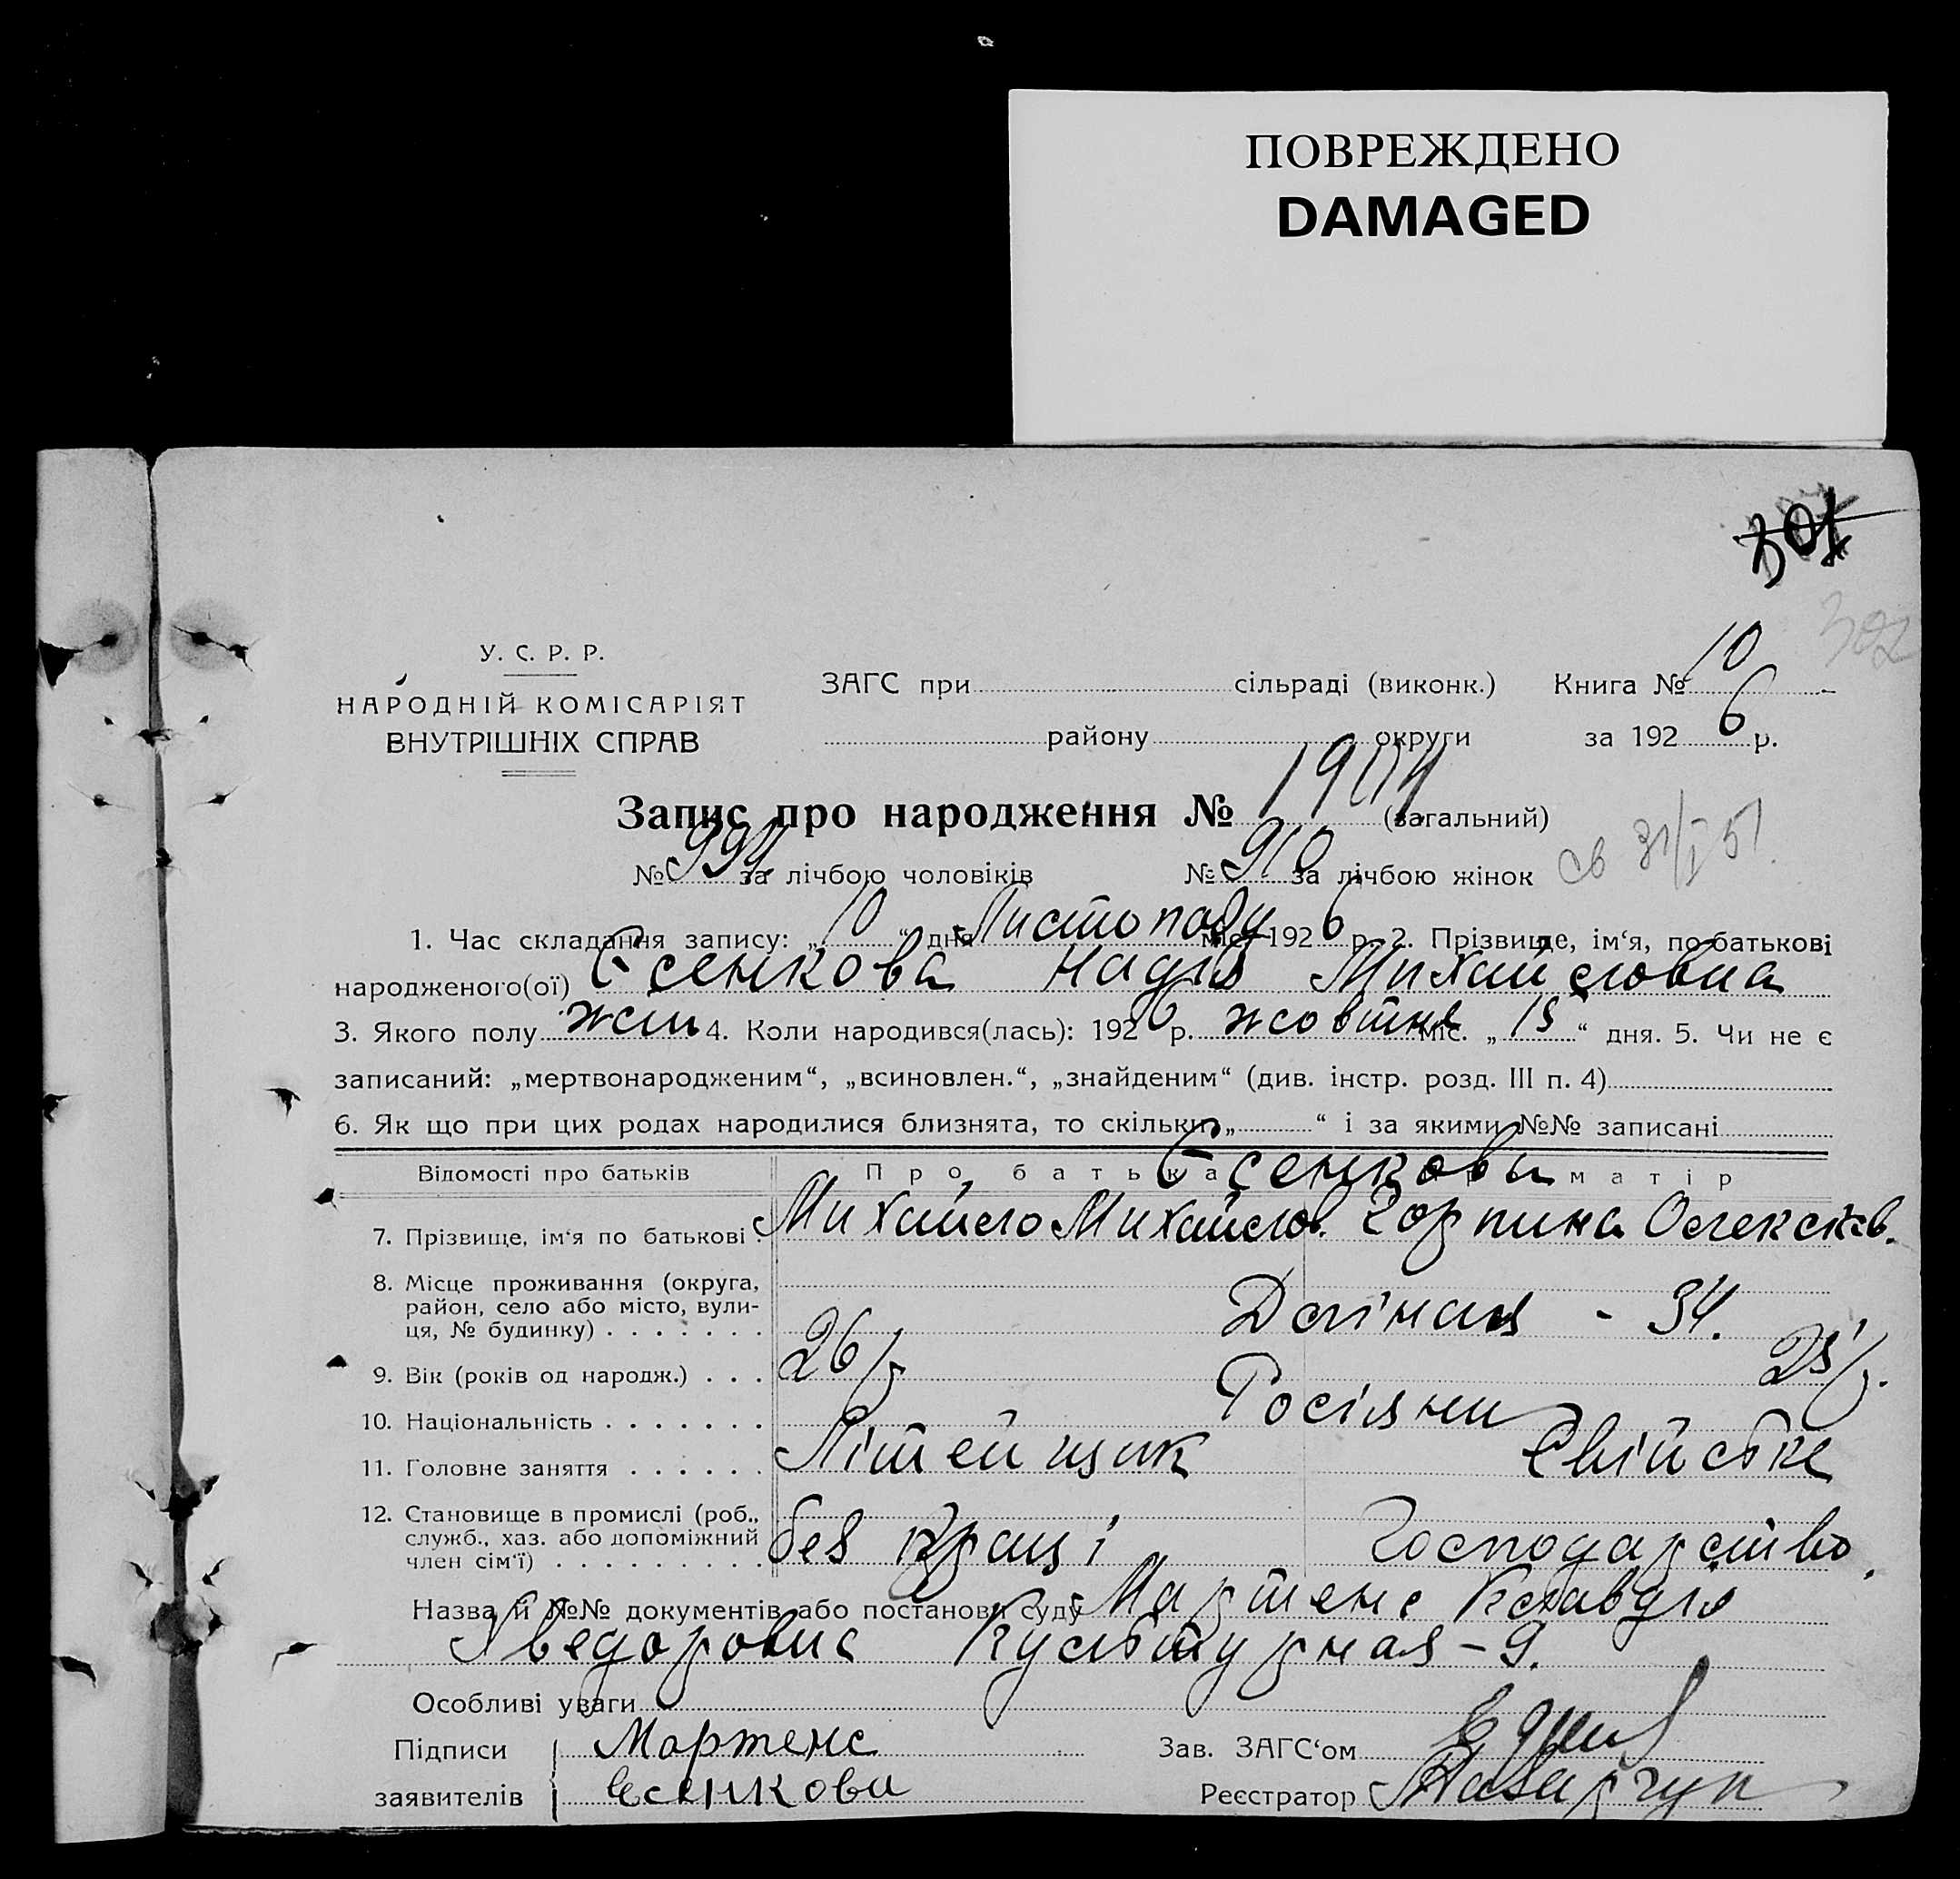 ПОВРЕЖДЕНО
DAMAGED
301
302
У. С. Р. Р.
НАРОДНІЙ КОМІСАРІЯТ
ВНУТРІШНІХ СПРАВ
ЗАГС при сільраді (виконк.) Книга № 10
району округи за 1926 р.
Запис про народження № 1904 (загальний)
№ 994 за лічбою чоловіків № 910 за лічбою жінок
св 31/I 51
1. Час складання запису: „10“ дня Листопаду міс. 1926 р. 2. Прізвище, ім‘я, по-батькові
народженого(ої) Єсенкова Надія Михайловна
3. Якого полу жен 4. Коли народився(лась): 1926 р. жовтня міс. „15“ дня. 5. Чи не є
записаний: „мертвонародженим“, „всиновлен.“, „знайденим“ (див. інстр. розд. III п. 4)
6. Як що при цих родах народилися близнята, то скільки „ “ і за якими №№ записані
Відомості про батьків Про батька матір
Єсенкови
7. Прізвище, ім‘я по батькові Михайло Михайлов. Горпина Олексієв.
8. Місце проживання (округа,
район, село або місто, вули-
ця, № будинку) Даліная - 34.
9. Вік (років од народж.) 26/р 25/р.
10. Національність Росіяни
11. Головне заняття Літейщик Свійське
12. Становище в промислі (роб.,
служб., хаз. або допоміжний
член сім‘ї) без праці Господарство
Назва й №№ документів або постанови суду Мартенс Клавдія
Хведоровна Культурная - 9.
Особливі уваги
Підписи Мартенс Зав. ЗАГС‘ом
заявителів Есенкова Реєстратор Назарчук